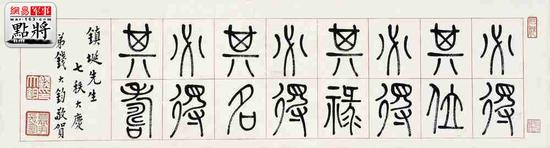 必得
其位
必得
其祿
必得
其名
必得
其壽
鎮埏先生
七秩大慶
弟錢大鈞敬賀
網易军事
war.163.com
點將